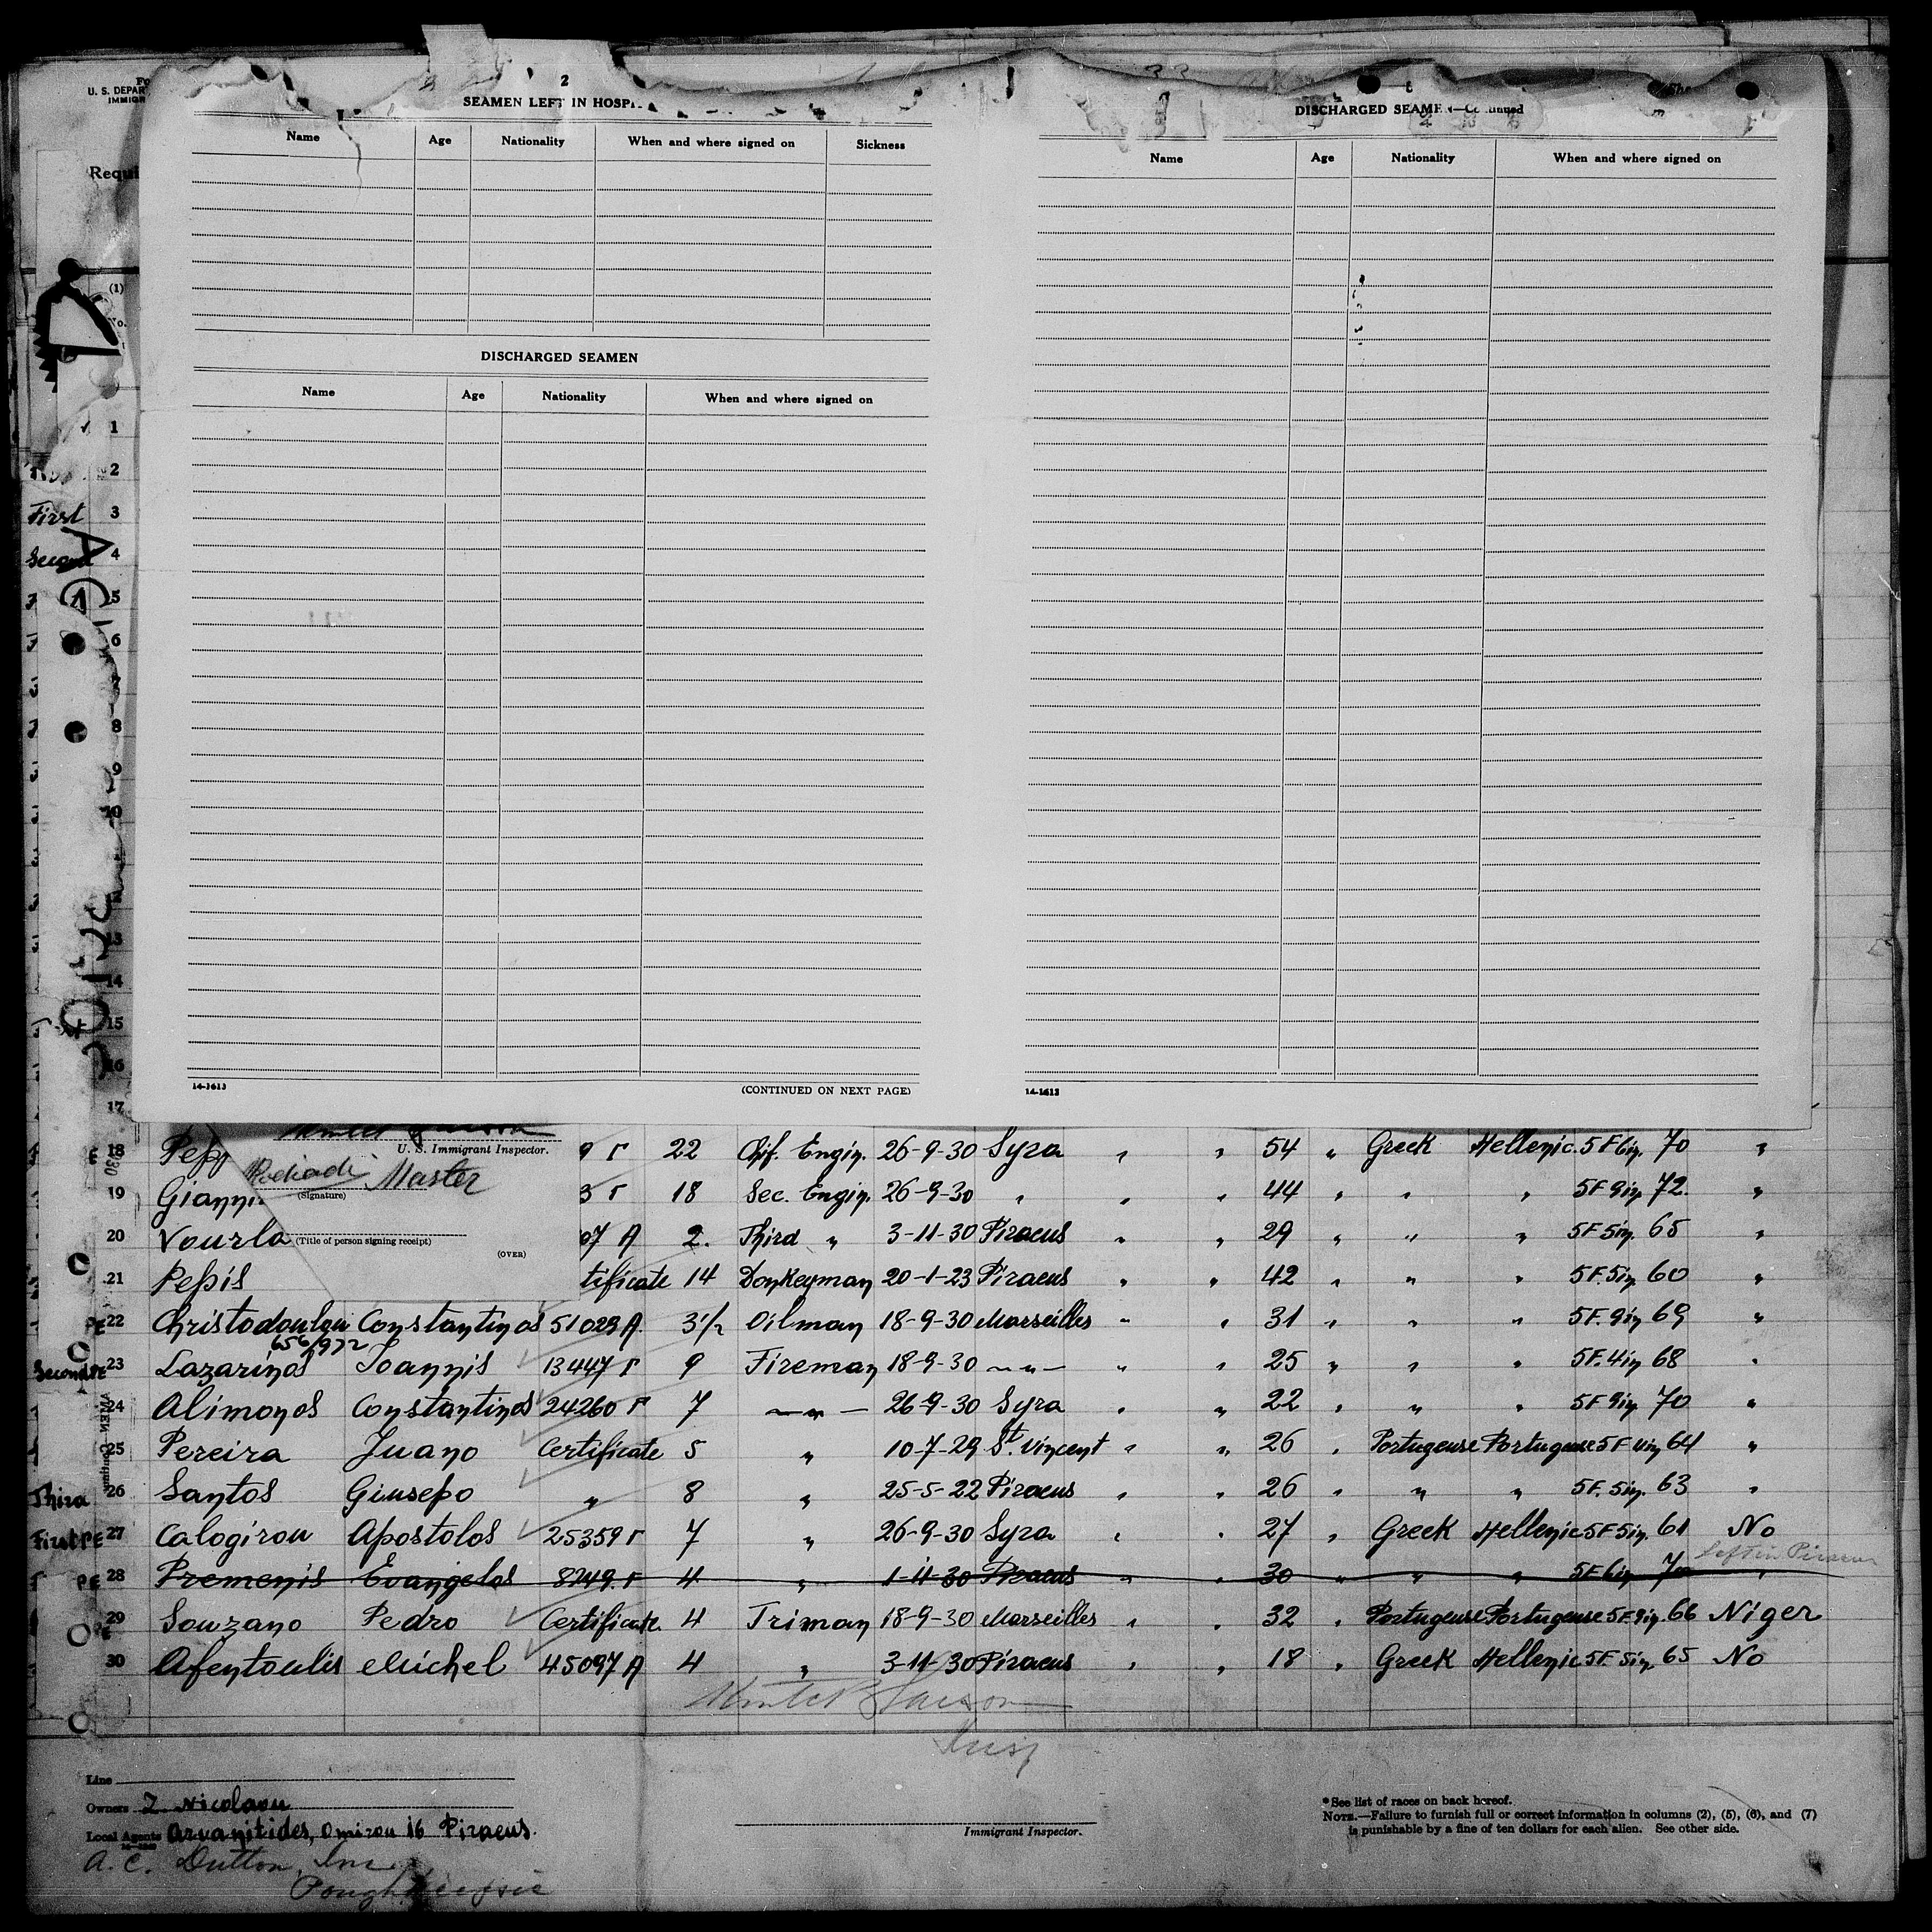 Fo
U. S. DEPAR
IMMIGR
Requi
(1)
No.
2
SEAMEN LEFT IN HOSPI
Name Age Nationality When and where signed on Sickness
DISCHARGED SEAMEN
Name Age Nationality When and where signed on
14-1613 (CONTINUED ON NEXT PAGE)
DISCHARGED SEAMEN—Continued
Name Age Nationality When and where signed on
14-1613
1
2
First 3
Second 4
5
6
7
8
9
10
13
14
15
16
17
U. S. Immigrant Inspector.
Master
(Signature)
(Title of person signing receipt)
(OVER)
18 Pep 9 Γ 22 Chif. Engin. 26-9-30 Syra " " 54 " Greek Hellenic 5F 6in. 70 "
19 Gianni 3 Γ 18 Sec. Engin. 26-9-30 " " " 44 " " " 5F 9in 72. "
20 Vourla 07 A 2. Third " 3-11-30 Piraeus " " 29 " " " 5F 5in. 65 "
21 Pepis tificate 14 Donkeyman 20-1-23 Piraeus " " 42 " " " 5F. 5in. 60 "
PE 22 Christodoulou Constantinos 51029 A. 3 1/2 Oilman 18-9-30 Marseilles " " 31 " " " 5F. 9in 69 "
656/972
Second PE 23 Lazarinos Ioannis 13447 Γ 9 Fireman 18-9-30 —"— " " 25 " " " 5F. 4in 68 "
24 Alimonos Constantinos 24260 Γ 7 —"— 26-9-30 Syra " " 22 " " " 5F 9in 70 "
25 Pereira Juano Certificate 5 " 10-7-29 St. Vincent " " 26 " Portuguese Portuguese 5F 4in 64 "
Third 26 Santos Giusepo " 8 " 25-5-22 Piraeus " " 26 " " " 5F. 5in. 63 "
First PE 27 Calogirou Apostolos 25359 Γ 7 " 26-9-30 Syra " " 27 " Greek Hellenic 5F 5in. 61 No
Left in Piraeus
PE 28 Premenis Evangelos 8249. Γ 4 " 1-11-30 Piraeus " " 30 " " " 5F 6in 70 "
29 Souzano Pedro Certificate. 4 Triman 18-9-30 Marseilles " " 32 " Portugeuse Portugeuse 5F. 9in. 66 Niger
30 Afentoulis Michel 45097 A 4 " 3-11-30 Piraeus " " 18 " Greek Hellenic 5F. 5in. 65 No
Insp
Line
Owners Z. Nicolaou
Local Agents Arvanitides, Omirou 16 Piraeus.
A. C. Dutton, Inc
Poughkeepsie
Immigrant Inspector.
* See list of races on back hereof.
NOTE.—Failure to furnish full or correct information in columns (2), (5), (6), and (7)
is punishable by a fine of ten dollars for each alien. See other side.